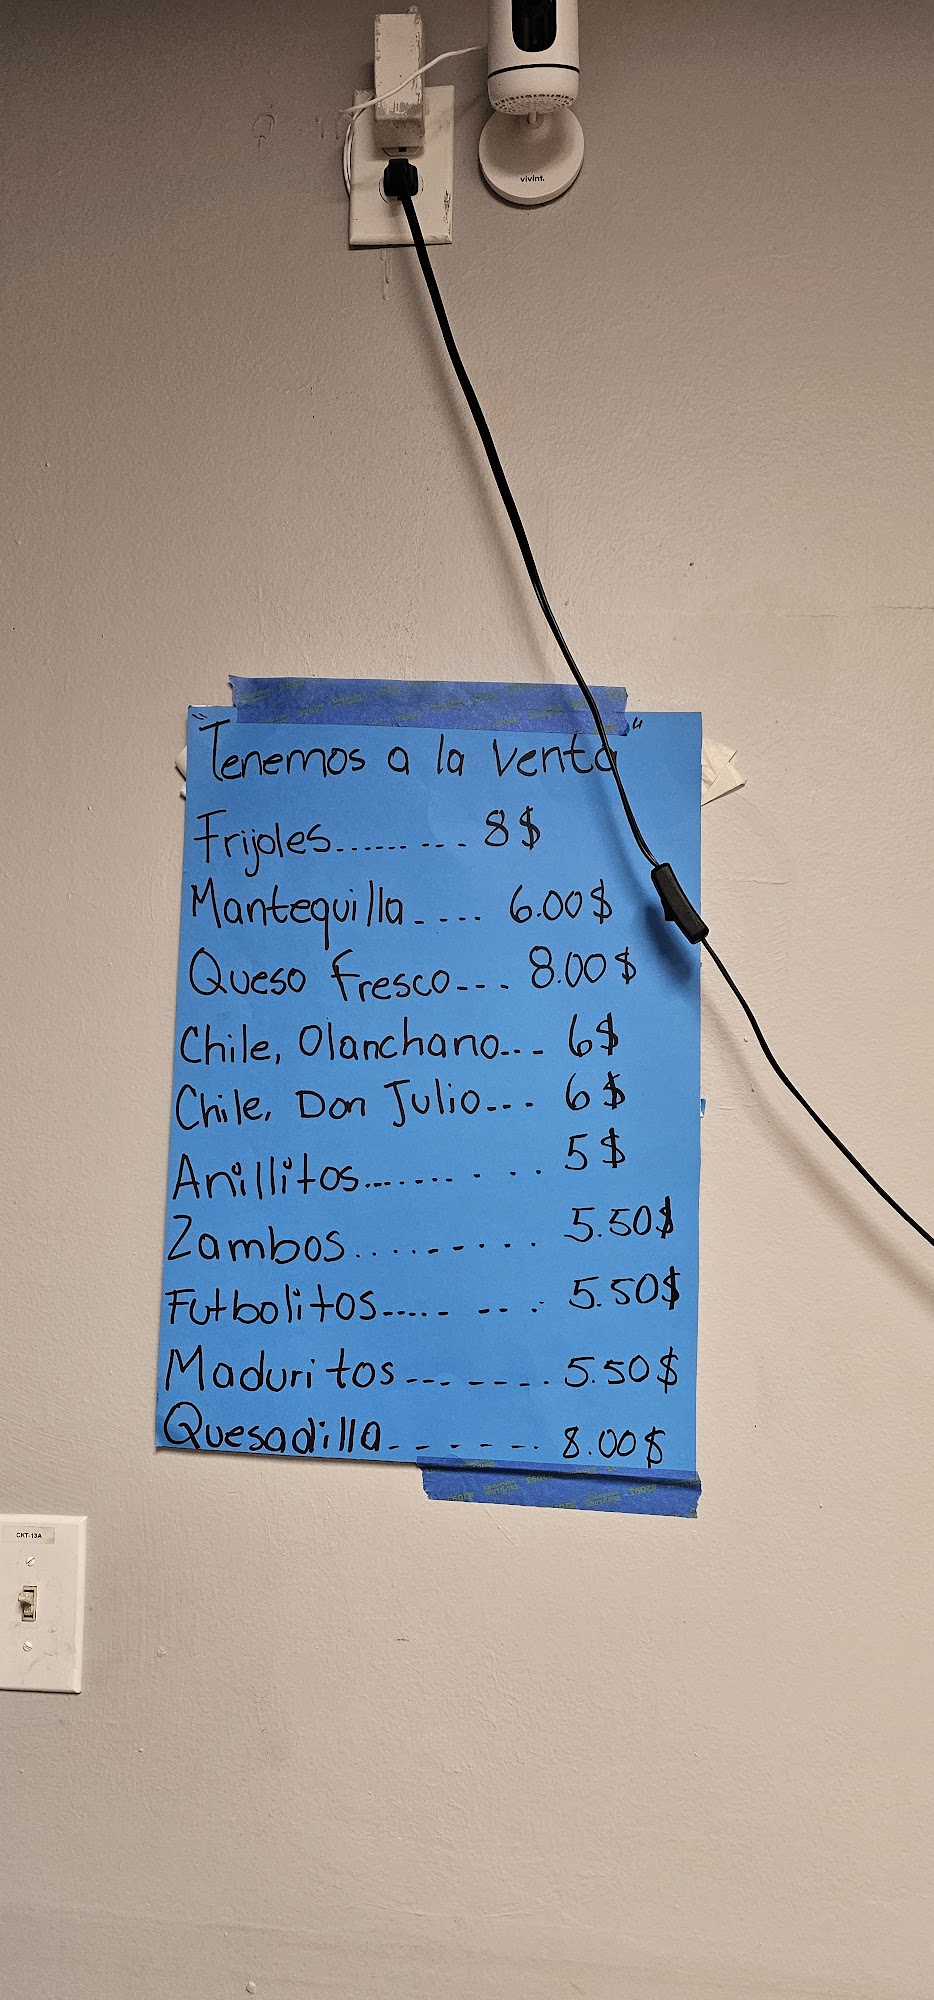 vivint.
"Tenemos a la venta"
Frijoles......... 8$
Mantequilla.... 6.00$
Queso fresco... 8.00$
Chile, Olanchano... 6$
Chile, Don Julio... 6$
Anillitos.......... 5$
Zambos.......... 5.50$
Futbolitos......... 5.50$
Maduritos........ 5.50$
Quesadilla....... 8.00$
CKT-13A